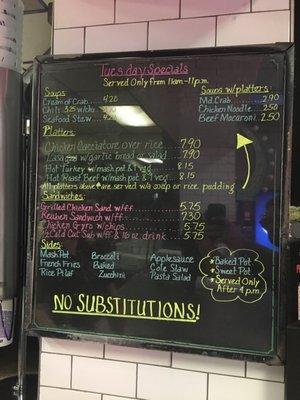 Tuesday Specials
Served Only from 11am-11p.m.
Soups:
Cream of Crab 4.20
Chili 3.25 w/chz
Seafood Stew 4.20
Soups w/platters:
Md. Crab 2.90
Chicken Noodle 2.50
Beef Macaroni 2.50
Platters:
Chicken Cacciatore over rice 7.90
Lasagna w/garlic bread or salad 7.90
Hot Turkey w/mash pot & 1 veg 8.15
Hot Roast Beef w/mash pot & 1 veg 8.15
All platters above are served w/a soup or rice pudding
Sandwiches:
Grilled Chicken Sand w/ff 5.75
Reuben Sandwich w/ff 7.30
Chicken Gyro w/chips 5.75
1/2 Cold Cut Sub w/ff & 16 oz. drink 5.75
Sides:
Mash Pot Broccoli Applesauce
French Fries Baked Cole Slaw
Rice Pilaf Zucchini Pasta Salad
*Baked Pot
*Sweet Pot
*Served Only
After 4 p.m
NO SUBSTITUTIONS!